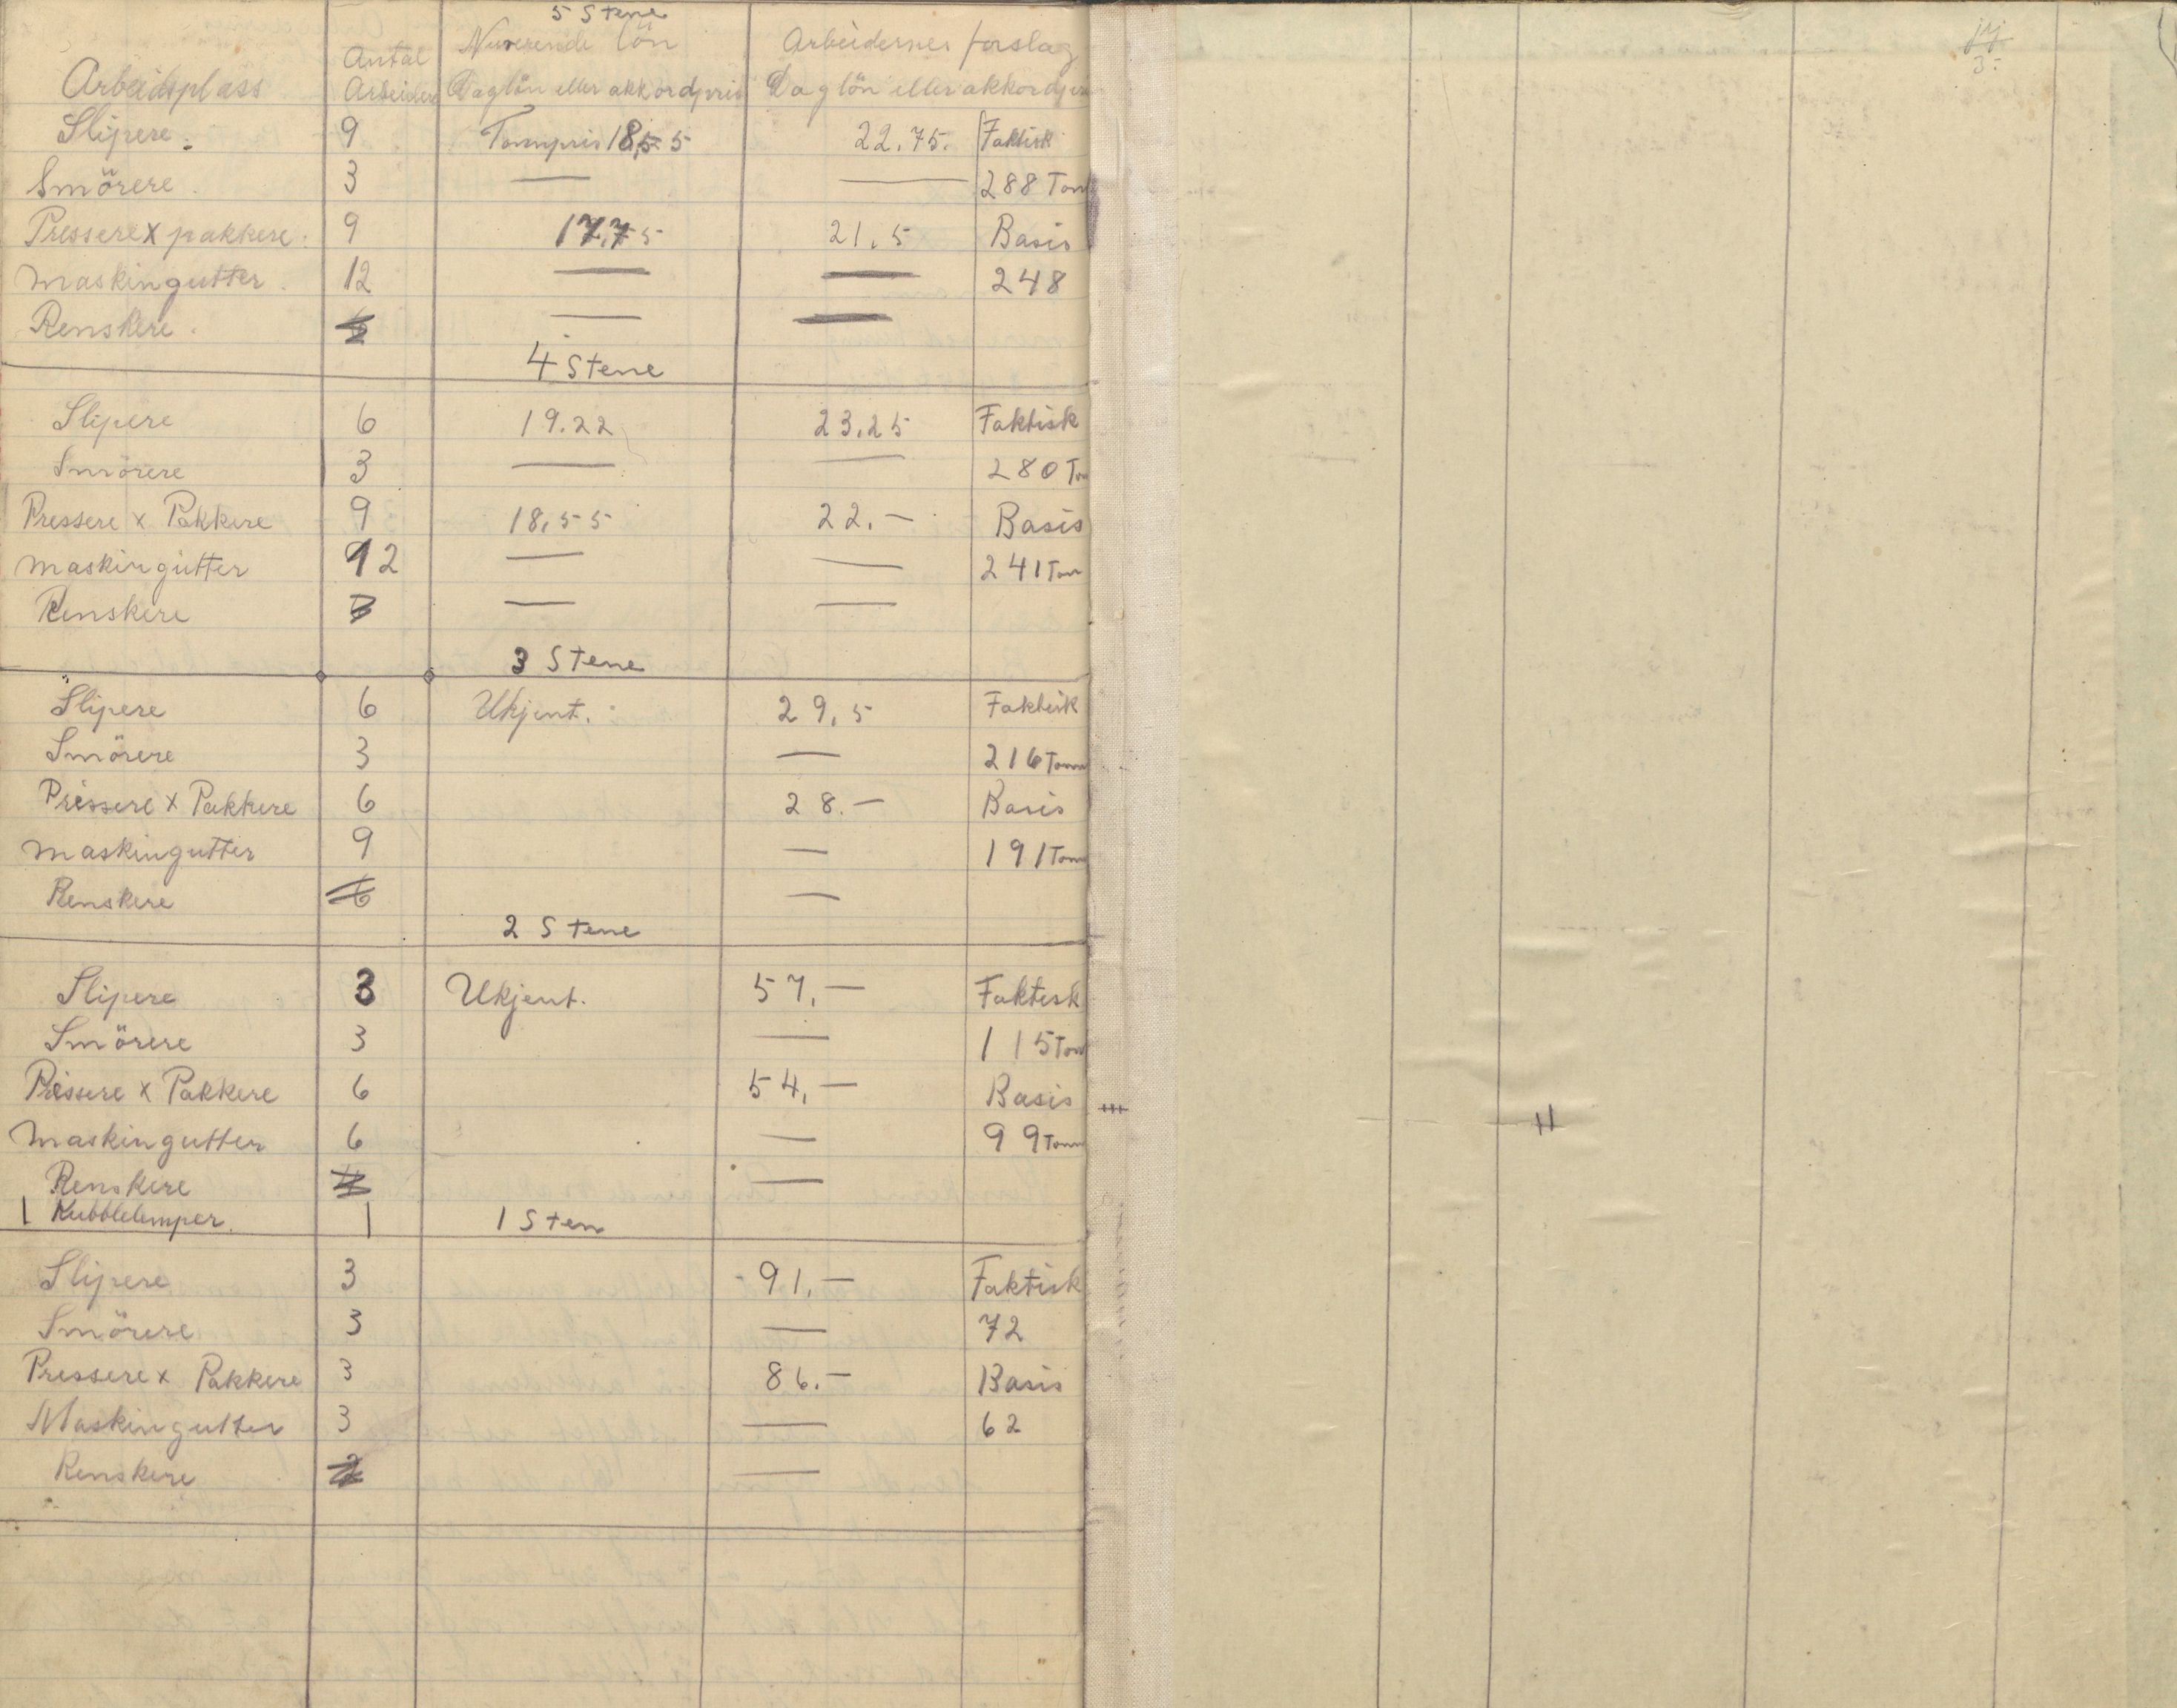 5 Stene
Arbeidsplass Antal Arbeidere Nuverende lön Daglön eller akkordpris Arbeidernes forslag Daglön eller akkordpris
Slipere. 9 Tonnpris 18,55 22.75. Faktisk
Smörere. 3 — — 288 Ton
Pressere x pakkere. 9 17,75 21,5 Basis
Maskingutter. 12 — — 248
Renskere. — —
4 Stene
Slipere 6 19.22 23,25 Faktisk
Smörere 3 — — 280 Ton
Pressere x Pakkere 9 18,55 22.— Basis
Maskingutter 12 — — 241 Ton
Renskere — —
3 Stene
Slipere 6 Ukjent. 29,5 Faktisk
Smörere 3 — 216 Tonn
Pressere x Pakkere 6 28.— Basis
Maskingutter 9 — 191 Tonn
Renskere 6 —
2 Stene
Slipere 3 Ukjent. 57,— Faktisk
Smörere 3 — 115 Ton
Pressere x Pakkere 6 54,— Basis
Maskingutter 6 — 99 Tonn
Renskere —
1 Kubblelemper. 1 1 Sten
Slipere 3 91,— Faktisk
Smörere 3 — 72
Pressere x Pakkere 3 86.— Basis
Maskingutter 3 — 62
Renskere 2 —